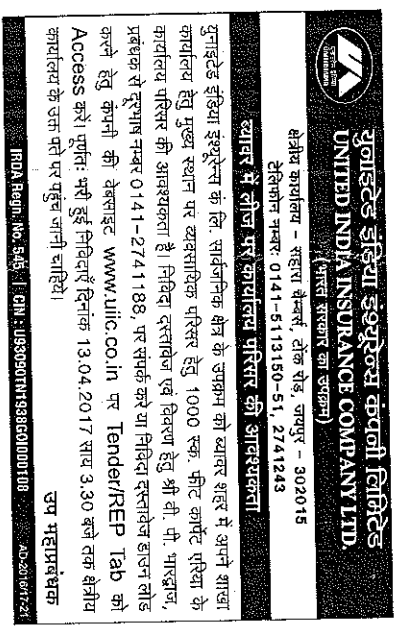 युनाइटेड इंडिया इंश्योरेन्स कंपनी लिमिटेड
UNITED INDIA INSURANCE COMPANY LTD.
(भारत सरकार का उपक्रम)
क्षेत्रीय कार्यालय – सहारा चैम्बर्स, टोंक रोड, जयपुर – 302015
टेलिफोन नम्बर: 0141-5113150-51, 2741243
ब्यावर में लीज पर कार्यालय परिसर की आवश्यकता
युनाइटेड इंडिया इंश्योरेन्स कं लि. सार्वजनिक क्षेत्र के उपक्रम को ब्यावर शहर में अपने शाखा
कार्यालय हेतु मुख्य स्थान पर व्यवसायिक परिसर हेतु 1000 स्क. फीट कार्पेट एरिया के
कार्यालय परिसर की आवश्यकता है। निविदा दस्तावेज एवं विवरण हेतु श्री वी. पी. भारद्वाज,
प्रबंधक से दूरभाष नम्बर 0141-2741188, पर संपर्क करे या निविदा दस्तावेज डाउन लोड
करने हेतु कंपनी की वेबसाइट www.uiic.co.in पर Tender/REP Tab को
Access करें। पूर्णतः भरी हुई निविदाएँ दिनांक 13.04.2017 सायं 3.30 बजे तक क्षेत्रीय
कार्यालय के उक्त पते पर पहुंच जानी चाहिये।
उप महाप्रबंधक
IRDA Regn. No. 545 | CIN : U93090TN1938GOI000108
AD-2016/17-21